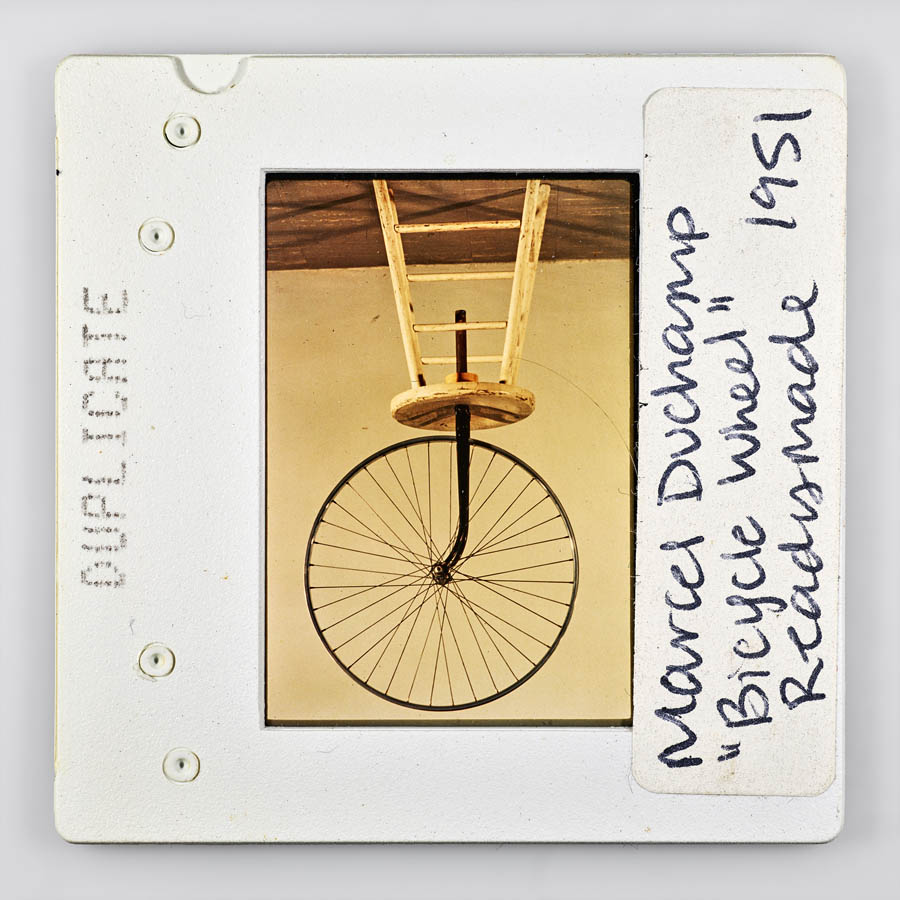 DUPLICATE
Marcel Duchamp
"Bicycle Wheel" 1951
Readymade